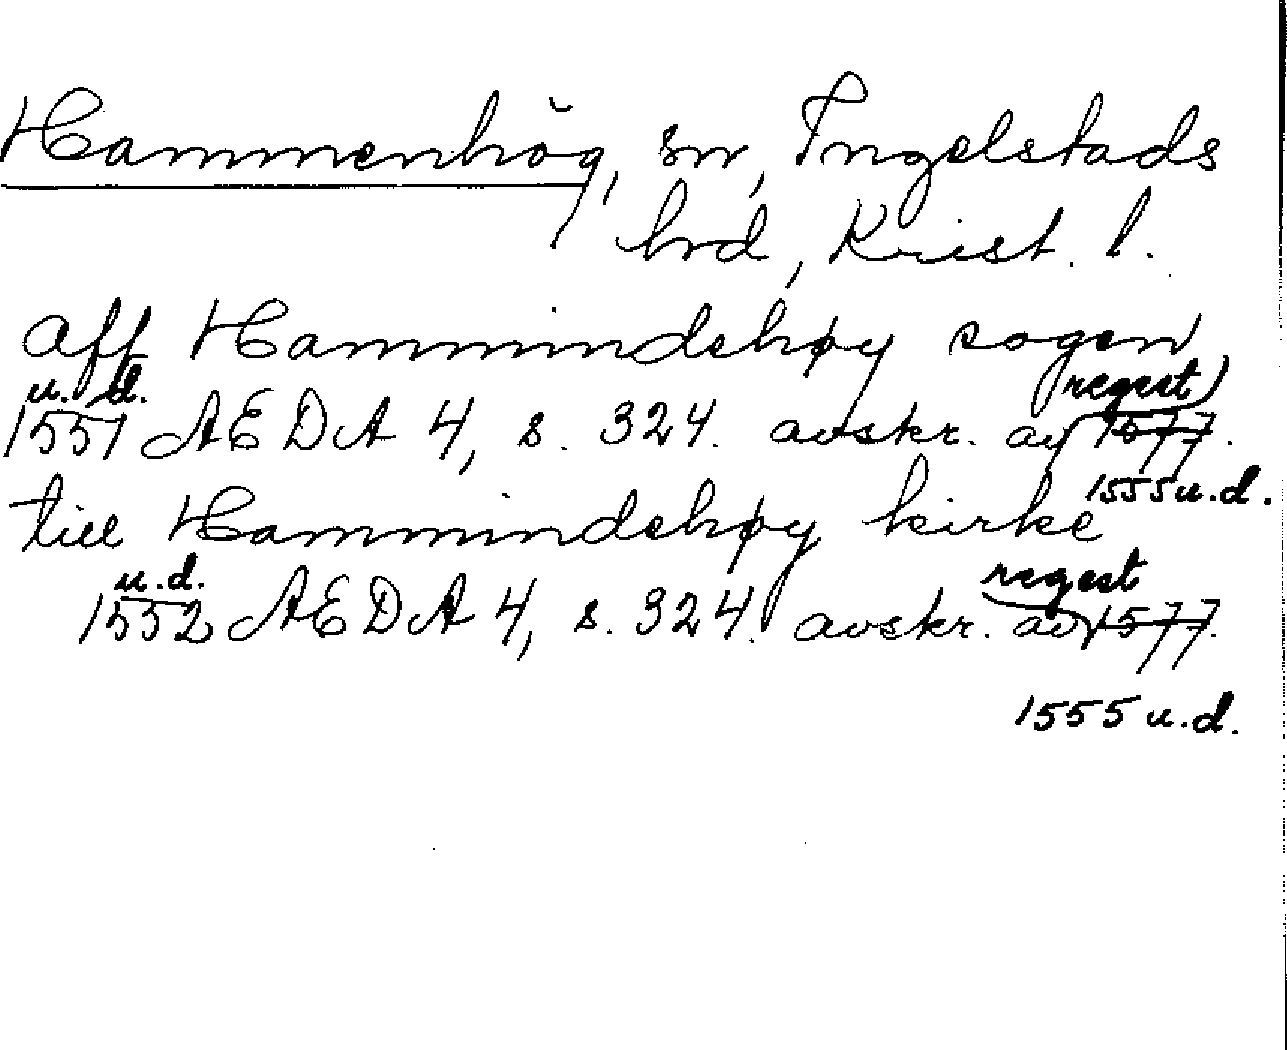 Hammenhög, sn, Ingelstads
hrd, Krist. l.
aff Hammindehøy sogen
u. d. regest
1551 AEDA 4, s. 324. avskr. av 1577.
1555 u.d.
till Hammindehøy kirke
u.d. regest
1552 AEDA 4, s. 324. avskr. av 1577.
1555 u.d.